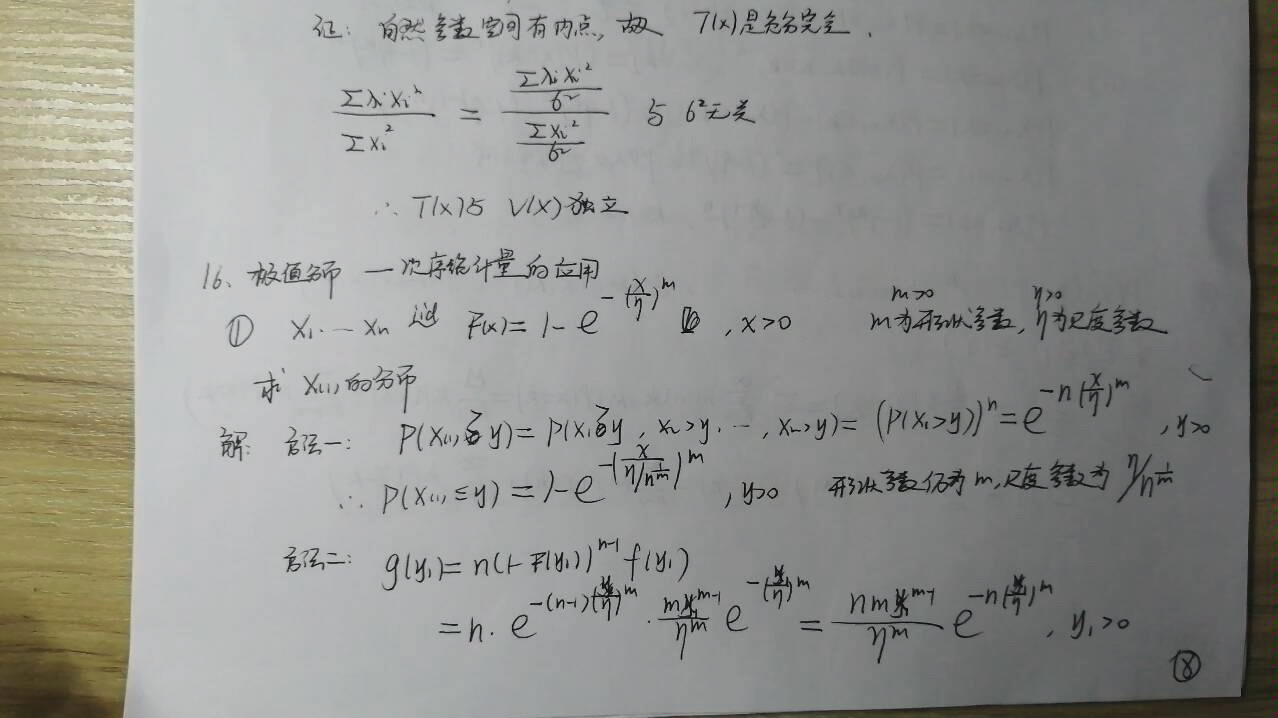 证：自然参数空间有内点，故 T(x)是充分完全．
\frac{Σλ_i x_i^2}{Σx_i^2} = \frac{\frac{Σλ_i x_i^2}{6^2}}{\frac{Σx_i^2}{6^2}} 与 6^2无关
∴ T(x)与 V(x)独立
16、极值分布 — 次序统计量的应用
① X_1 … X_n iid F(x)=1-e^{-(\frac{x}{η})^m}, x>0 m>0 m为形状参数, η>0 η为尺度参数
求 X_{(1)}的分布
解: 方法一: P(X_{(1)}>y)=P(X_1>y, X_2>y, …, X_n>y)=(P(X_1>y))^n=e^{-n(\frac{x}{η})^m}, y>0
∴ P(X_{(1)}≤y)=1-e^{-(\frac{x}{η/n^{\frac{1}{m}}})^m}, y>0 形状参数仍为m,尺度参数为 η/n^{\frac{1}{m}}
方法二: g(y_1)=n(1-F(y_1))^{n-1}f(y_1)
=n·e^{-(n-1)(\frac{y_1}{η})^m}·\frac{my_1^{m-1}}{η^m}e^{-(\frac{y_1}{η})^m}=\frac{nmy_1^{m-1}}{η^m}e^{-n(\frac{y_1}{η})^m}, y_1>0
⑧